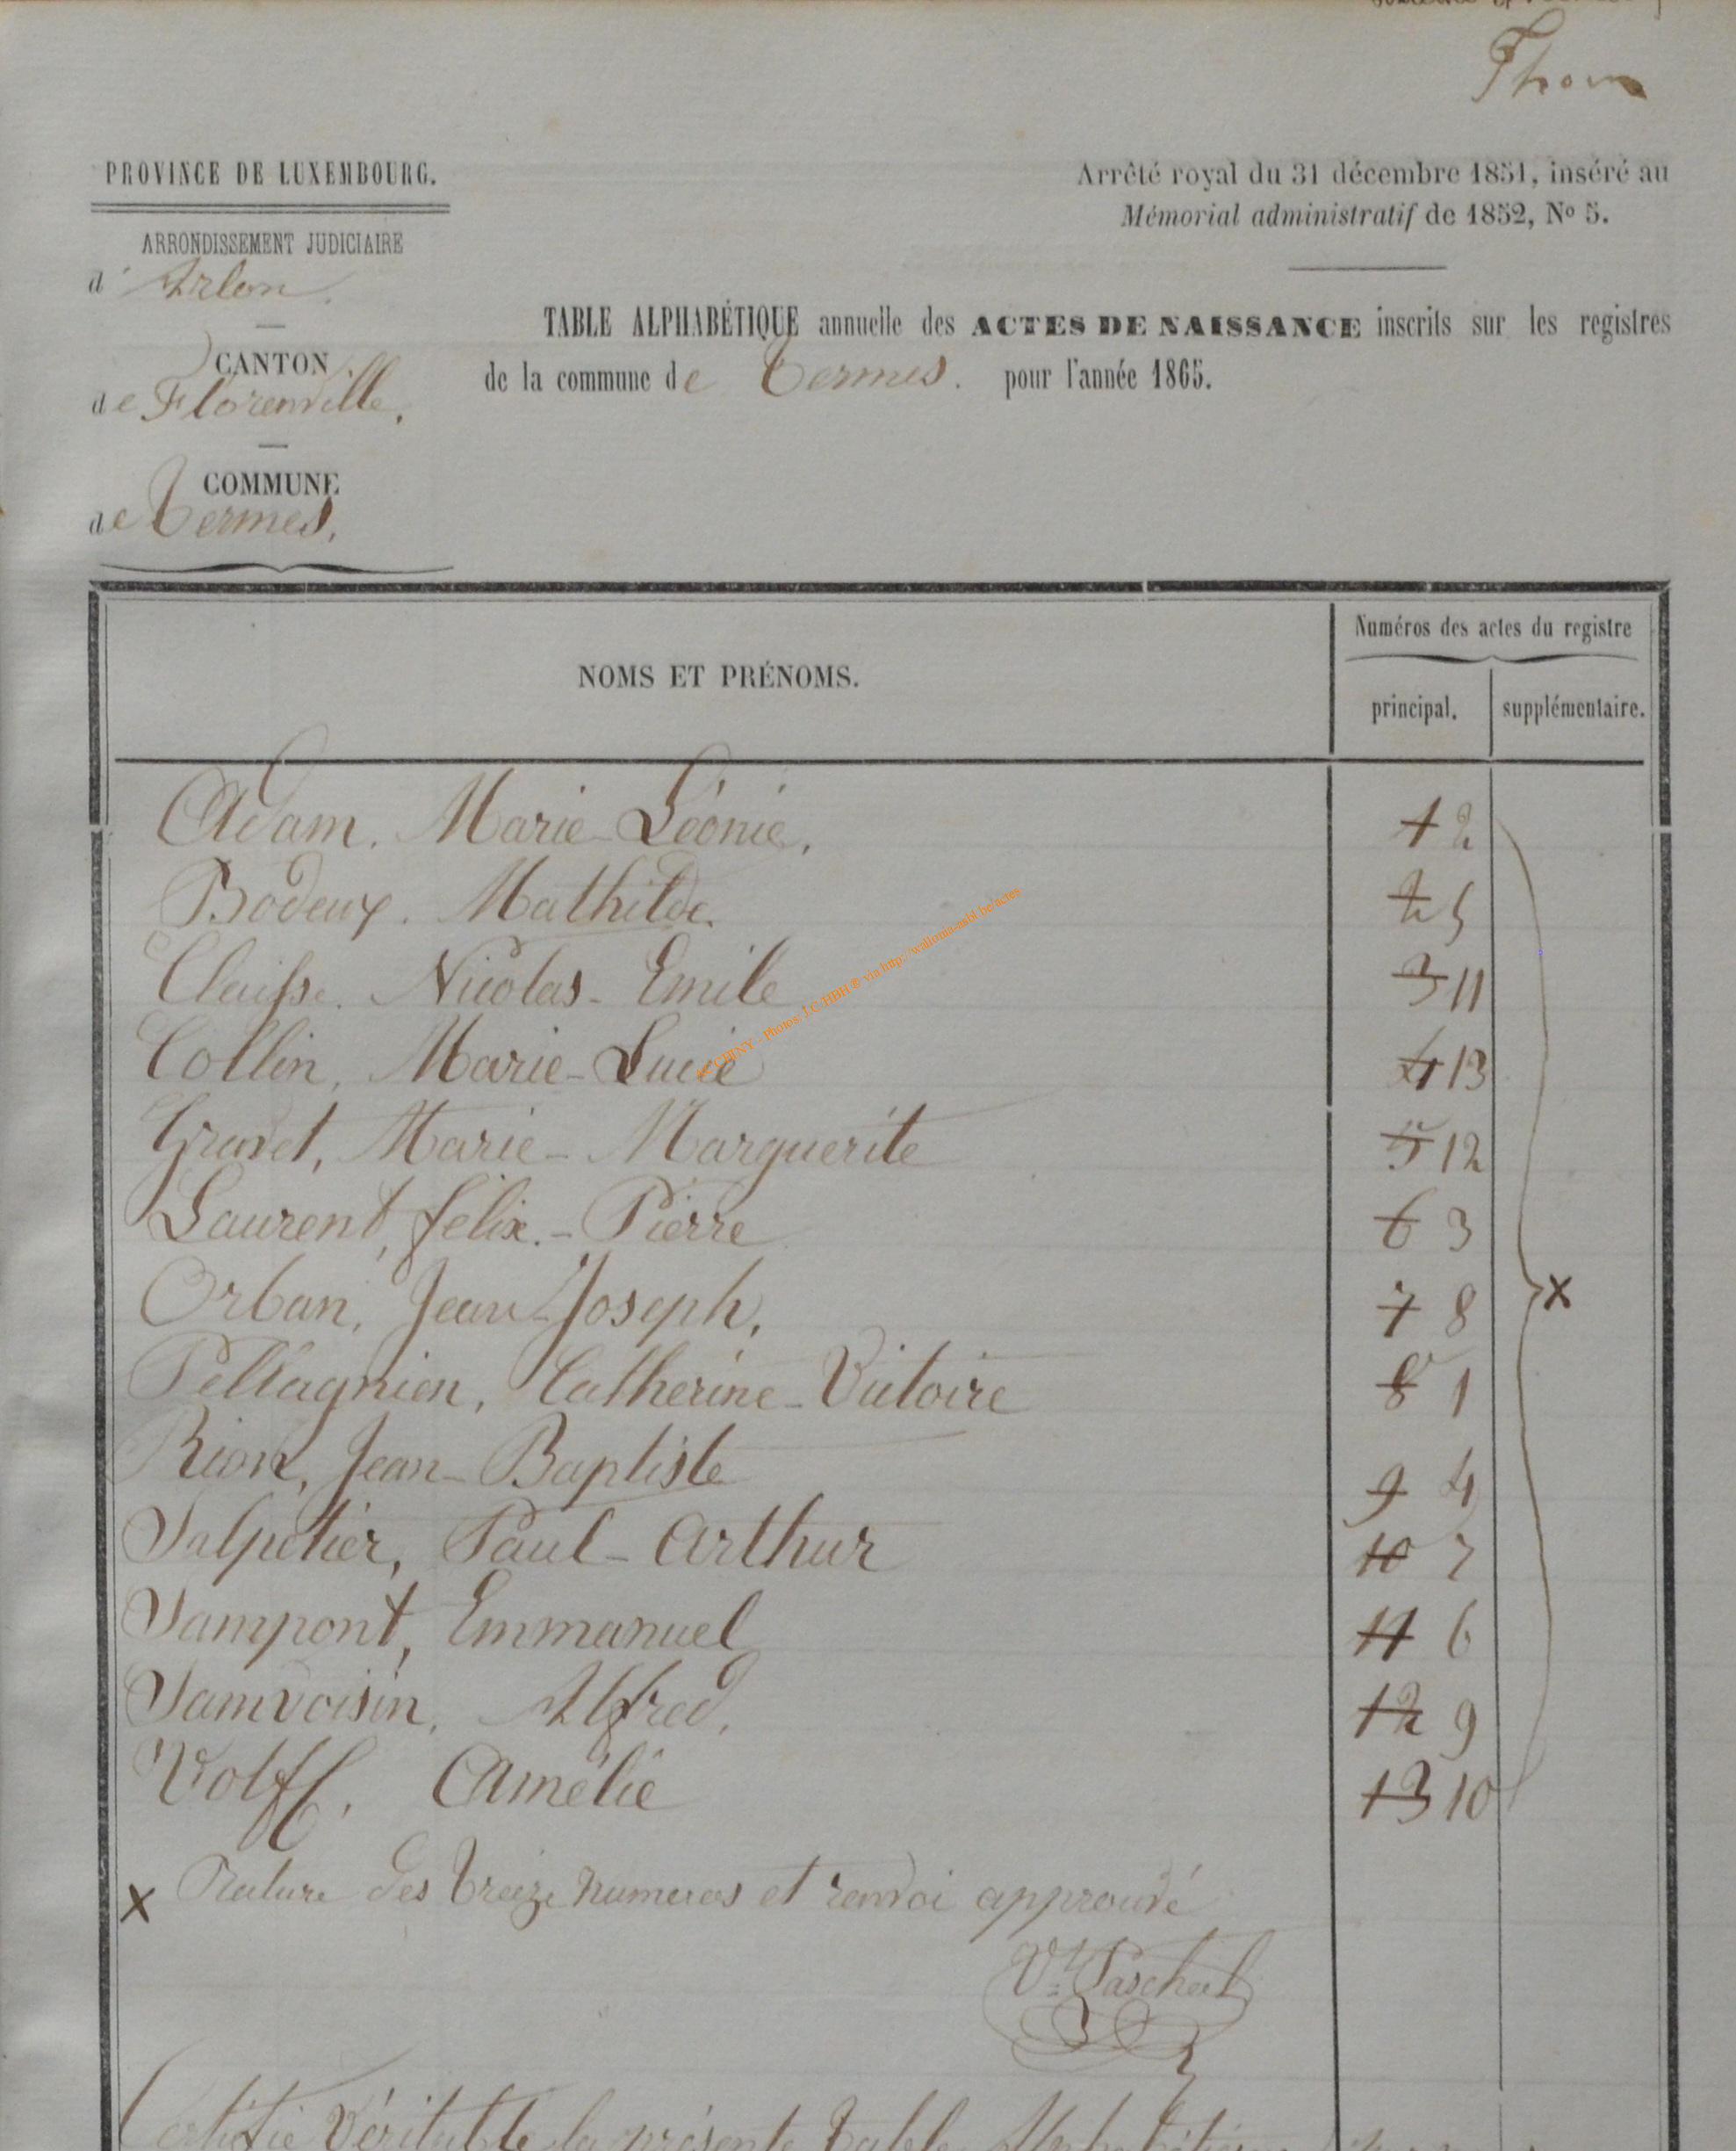 Thom
PROVINCE DE LUXEMBOURG.
ARRONDISSEMENT JUDICIAIRE
d'Arlon.
CANTON
de Florenville.
COMMUNE
de Termes.
Arrêté royal du 31 décembre 1851, inséré au
Mémorial administratif de 1852, No 5.
TABLE ALPHABÉTIQUE annuelle des ACTES DE NAISSANCE inscrits sur les registres
de la commune de Termes. pour l'année 1865.
NOMS ET PRÉNOMS.
Numéros des actes du registre
principal. supplémentaire.
Adam. Marie-Léonie. 1 2
Bodeux. Mathilde. 2 5
Claisse. Nicolas-Emile 3 11
Collin, Marie-Lucie 4 13
Gravet, Marie-Marguerite 5 12
Laurent, félix.-Pierre 6 3
Orban, Jean-Joseph, 7 8 x
Pellagnien, Catherine-Victoire 8 1
Rion, Jean-Baptiste 9 4
Salpetier, Paul-Arthur 10 7
Sampont, Emmanuel 11 6
Samvoisin, Alfred. 12 9
Wolff. Amélie 13 10
x Rature des treize numeros et renvoi approuvé
Vt Paschal
Certifié Véritable la présente table Alphabétique
Photos J.C HBH ® via http://wallonia-asbl.be/actes